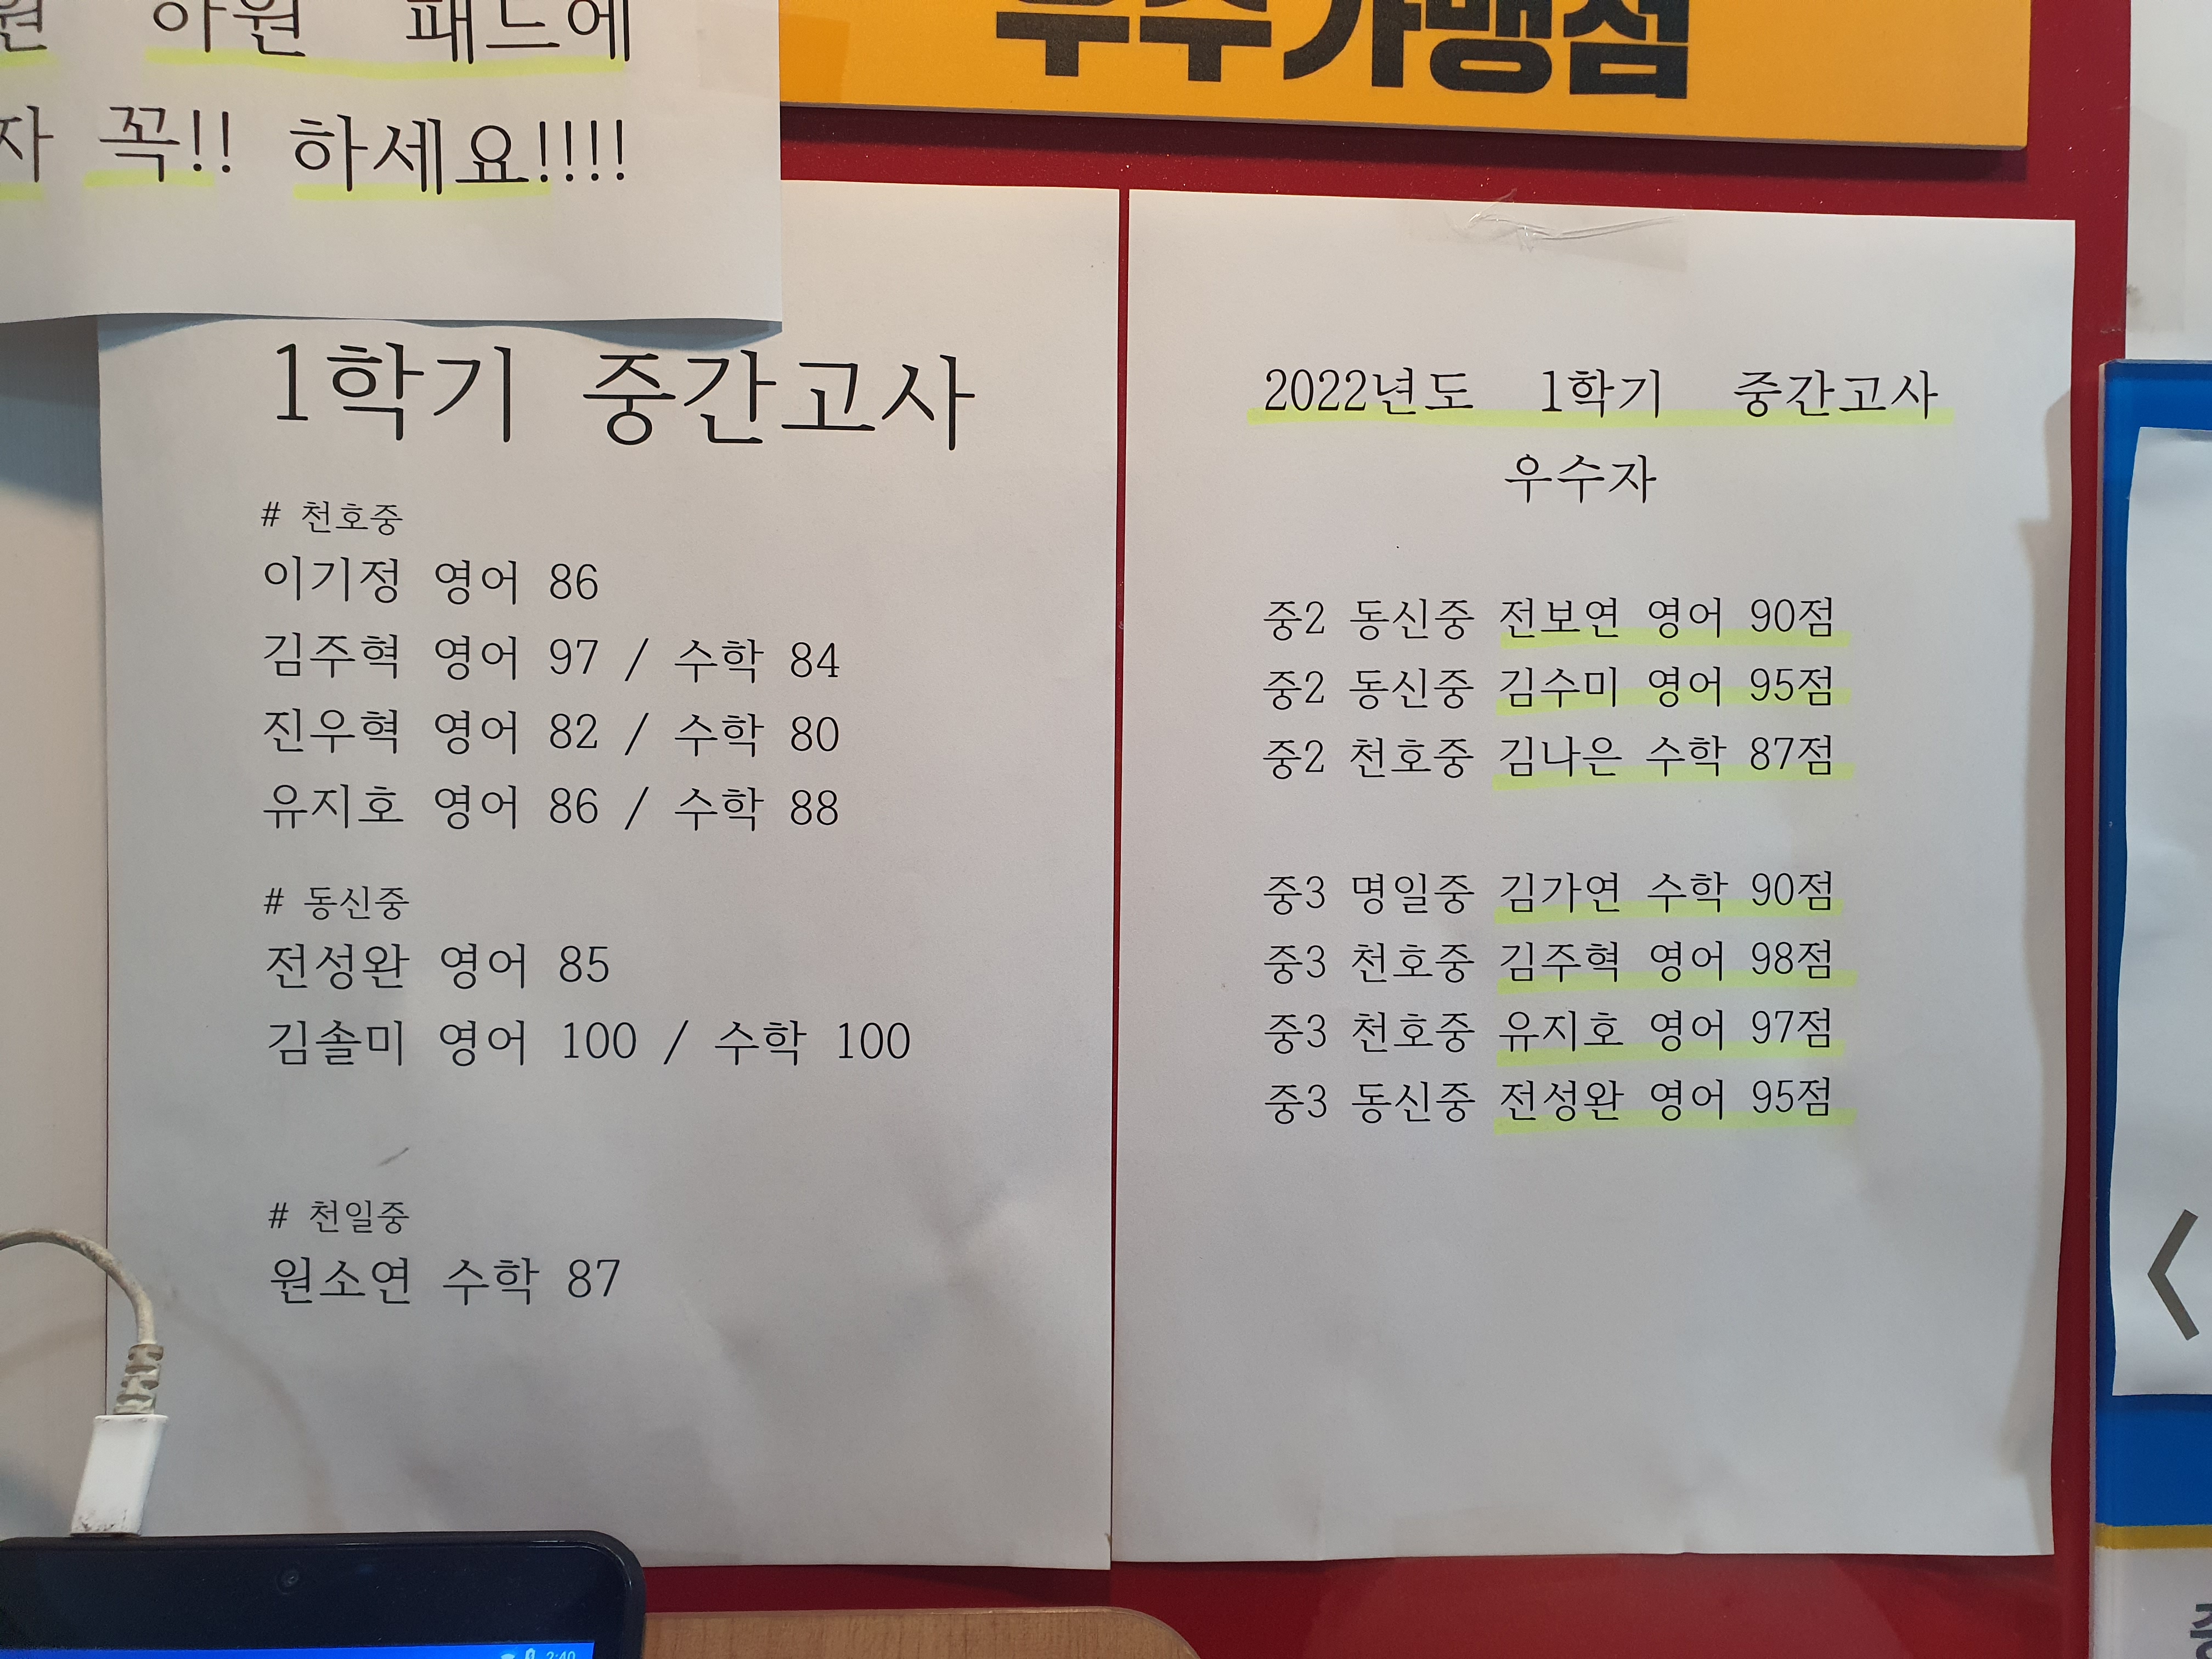 하원 패드에
꼭!! 하세요!!!!
우수가맹점
1학기 중간고사
# 천호중
이기정 영어 86
김주혁 영어 97 / 수학 84
진우혁 영어 82 / 수학 80
유지호 영어 86 / 수학 88
# 동신중
전성완 영어 85
김솔미 영어 100 / 수학 100
# 천일중
원소연 수학 87
2022년도 1학기 중간고사
우수자
중2 동신중 전보연 영어 90점
중2 동신중 김수미 영어 95점
중2 천호중 김나은 수학 87점
중3 명일중 김가연 수학 90점
중3 천호중 김주혁 영어 98점
중3 천호중 유지호 영어 97점
중3 동신중 전성완 영어 95점
2:40